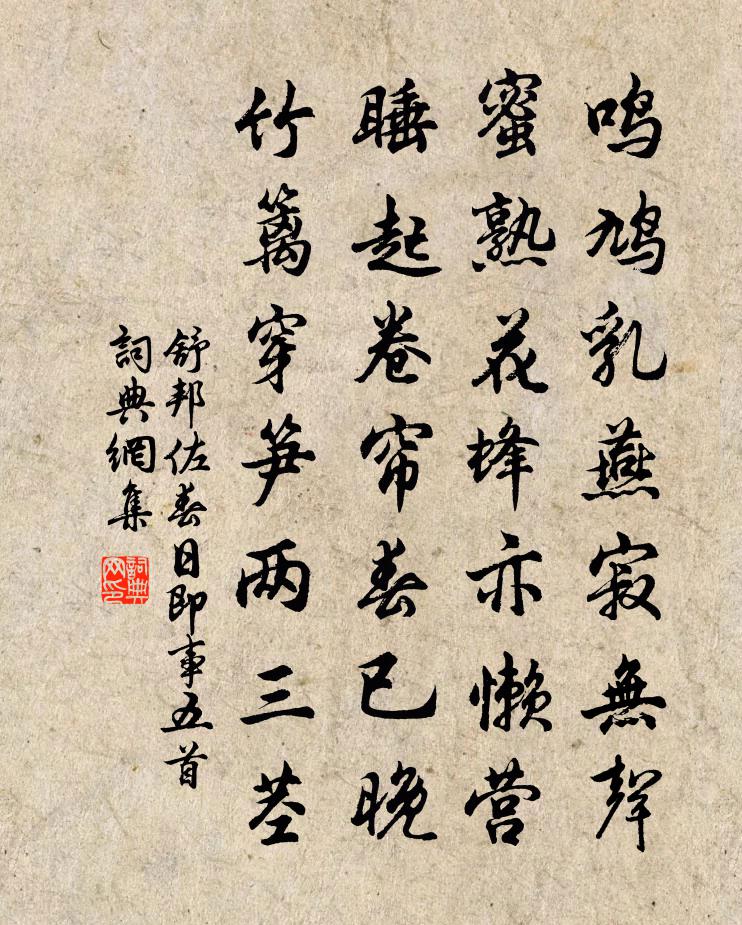 鸣鸠乳燕寂無聲
蜜熟花蜂亦懒营
睡起卷帘春已晚
竹篱穿笋两三茎
舒邦佐春日即事五首
詞典網集
詞典
网印